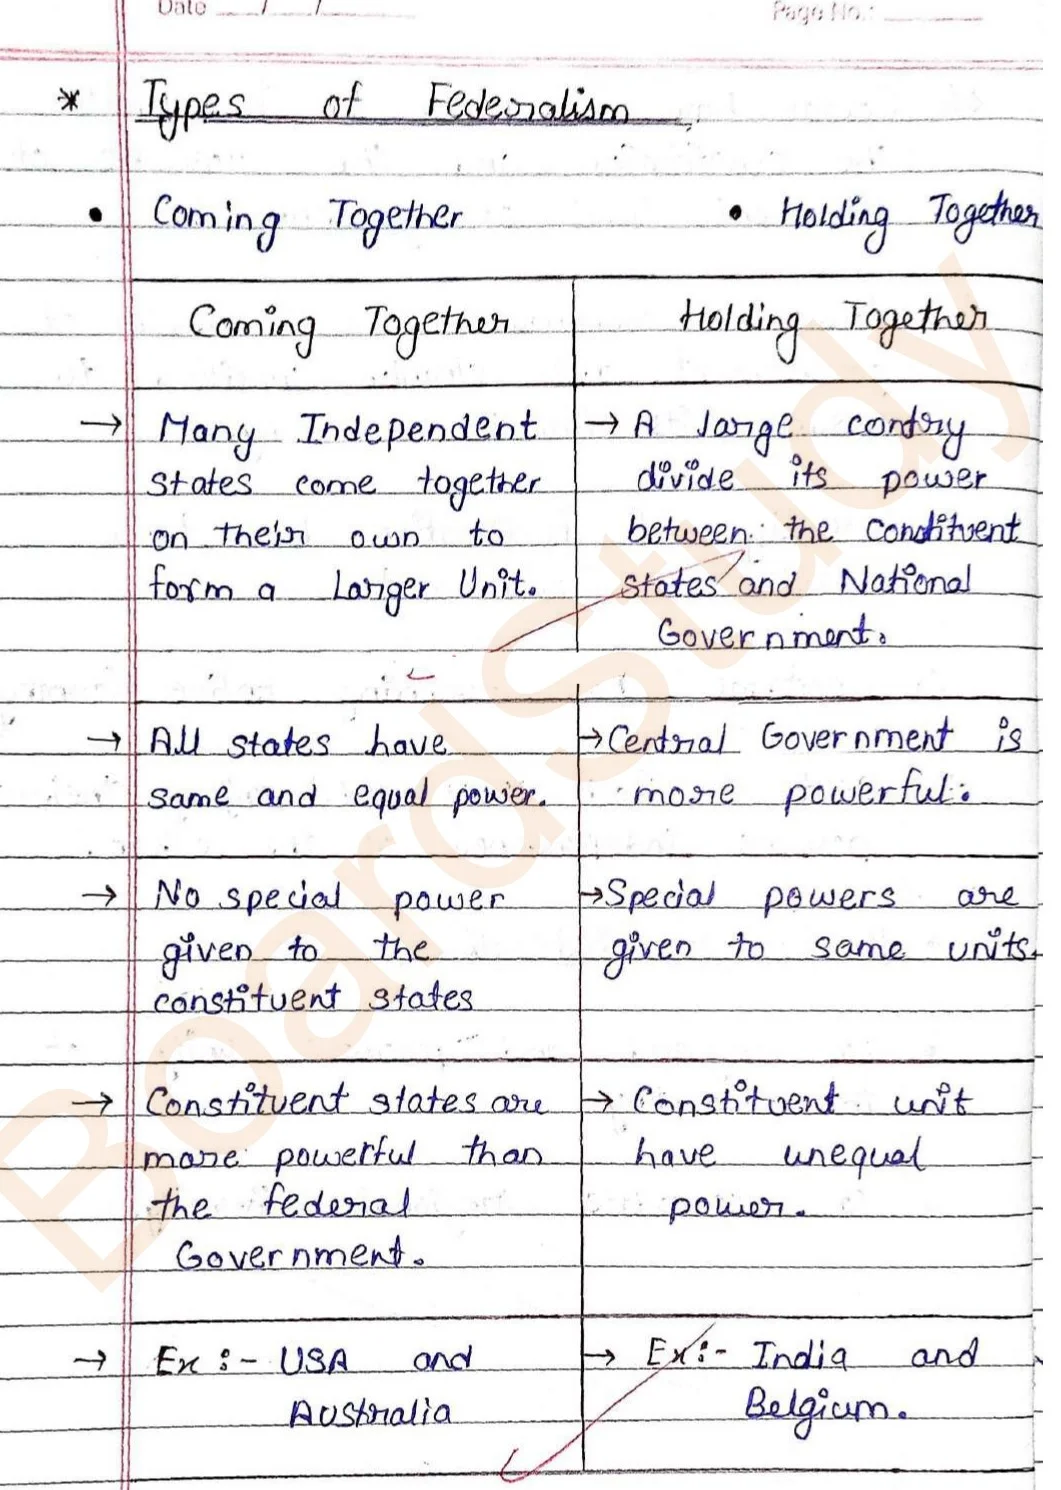 Date / /
Page No.:
* Types of Federalism
• Coming Together
• Holding Together
Coming Together
Holding Together
→ Many Independent
states come together
on their own to
form a Larger Unit.
→ A large contry
divide its power
between the constituent
states and National
Government.
→ All states have
same and equal power.
→ Central Government is
more powerful.
→ No special power
given to the
constituent states
→ Special powers are
given to same units.
→ Constituent states are
more powerful than
the federal
Government.
→ Constituent unit
have unequal
power.
→ Ex :- USA and
Australia
→ Ex:- India and
Belgium.
BoardStudy